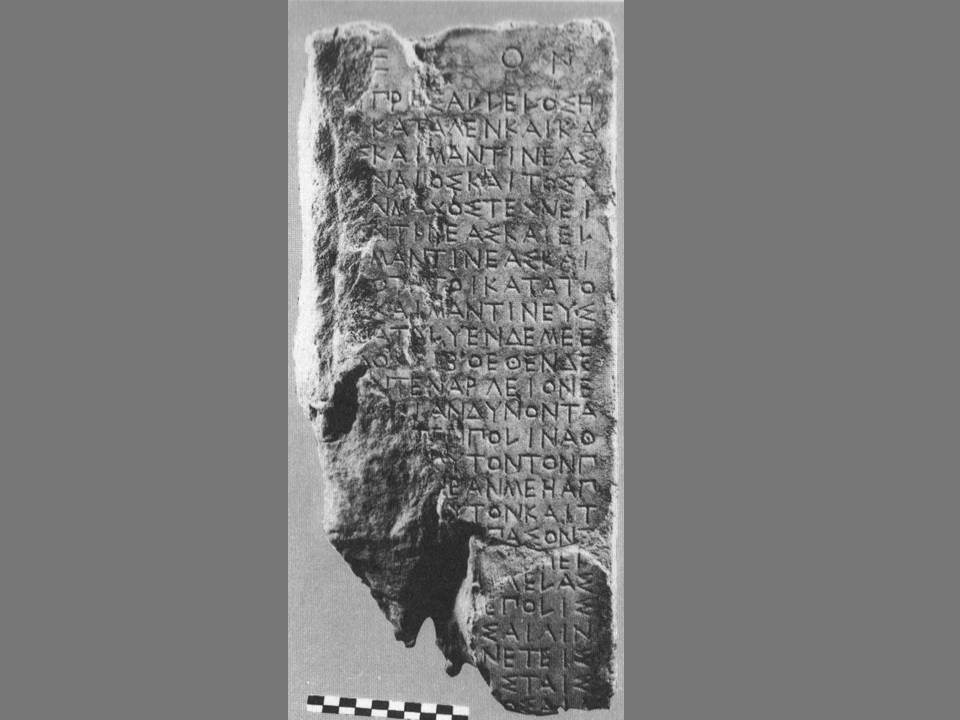 Ε Ο Ν
ΠΡΟΣΑΛΛΕΛΟΣΗ
ΚΑΤΑΓΕΝΚΑΙΚΑ
ΚΑΙΜΑΝΤΙΝΕΑΣ
ΝΑΙΟΣΚΑΙΤΟΣΧ
ΜΜΑΧΟΣΤΕΧΝΕΙ
ΝΤΙΝΕΑΣΚΑΙΕΛ
ΜΑΝΤΙΝΕΑΣΚΑΙ
ΤΟΙΚΑΤΑΤΟ
ΚΑΙΜΑΝΤΙΝΕΥΣ
ΑΤΑΛΥΕΝΔΕΜΕΕ
ΒΟΕΘΕΝΔΕ
ΠΕΝΑΡΓΕΙΟΝΕ
ΑΝΔΥΝΟΝΤΑ
ΠΟΛΙΝΑΘ
ΥΤΟΝΤΟΝΠ
ΕΑΝΜΕΗΑΠ
ΥΤΟΝΚΑΙΤ
ΠΑΣΟΝΤ
ΓΕΛΑΣ
ΕΠΟΛΙΣ
ΣΑΙΓΙΝ
ΝΕΤΕΙΣ
ΣΤΑΙΣ